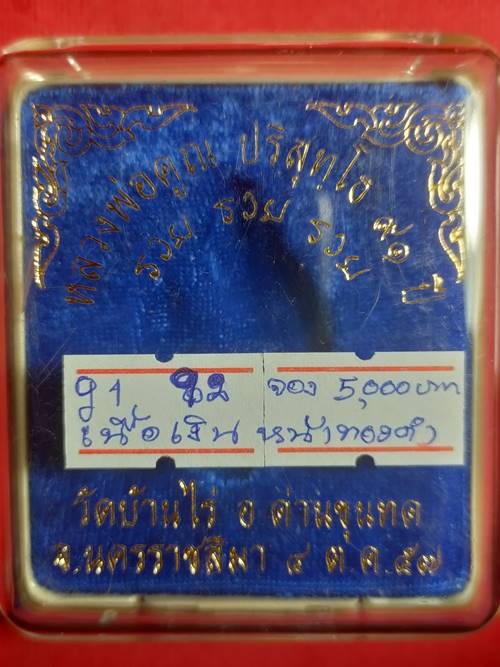 หลวงพ่อคูณ ปริสุทฺโธ
รวย รวย รวย ๙๑ ปี
จอง 5,000 บาท
เนื้อเงิน หน้าทองคำ
วัดบ้านไร่ อ ด่านขุนทด
จ.นครราชสีมา ๔ ต.ค.๕๗